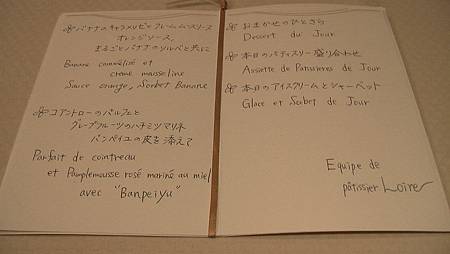 バナナのキャラメリゼとクレームムースソース
オレンジソース、
まるごとバナナのソルベと共に
Banane cannelisé et
creme mousseline
Sauce orange, Sorbet Banane
コアントローのパルフェと
グレープフルーツのハチミツマリネ
バンペイユの皮を添えて
Parfait de cointreau
et Pamplemousse rosé mariné au miel
avec "Banpeiyu"
おまかせのひとさら
Dessert du Jour
本日のパティスリー盛り合わせ
Assiette de Patissieres de Jour
本日のアイスクリームとシャーベット
Glace et Sorbet de Jour
Equipe de
pâtissier Loire